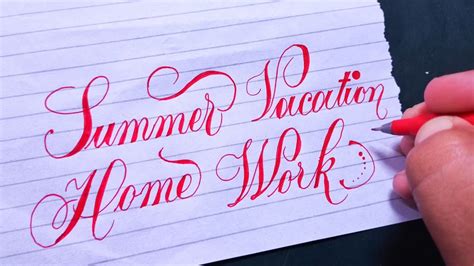 Summer Vacation
Home Work